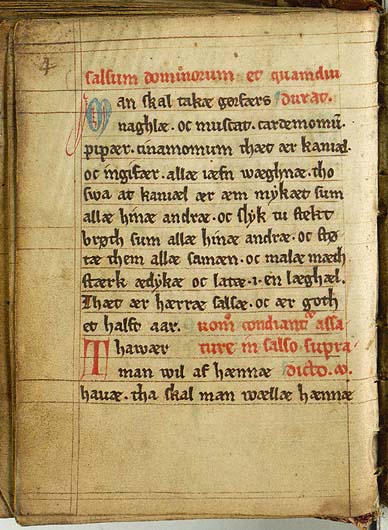 4
salsum dominorum et quamdiu
Man skal takæ gorfærs durat.
naghlæ. oc muscat. cardemomū.
pipær. cinamomum thæt ær kaniæl.
oc ingifær. allæ iæfn wæghnæ. tho
swa at kaniæl ær æm mykæt sum
allæ hinæ andræ. oc slyk tu stekt
brøth sum allæ hinæ andræ. oc stø
tæ them allæ samæn. oc malæ mæth
stærk ædykæ oc latæ .i. en læghæl.
Thæt ær hærræ salsæ. oc ær goth
et halft aar. uom̄ condiantͬ assa
Thawær ture in salso supra
man wil af hænnæ dicto. ꝏ.
hauæ. tha skal man wællæ hænnæ